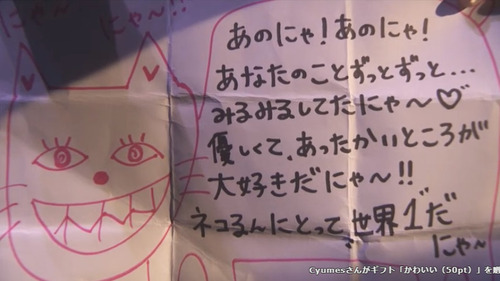 にゃ〜 にゃ〜!!
あのにゃ!あのにゃ!
あなたのことずっとずっと...
みるみるしてたにゃ〜♡
優しくて、あったかいところが
大好きだにゃ〜!!
ネコるんにとって世界1だ
にゃ〜
Cyumesさんがギフト「かわいい（50pt）」を贈